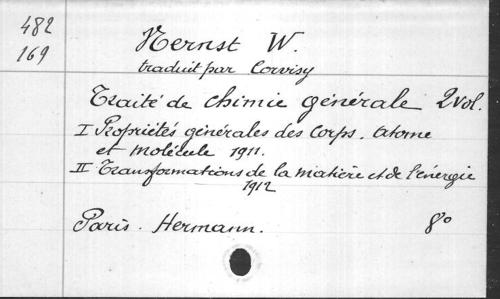 482
169
Nernst W.
traduit par Corvisy
Traité de chimie générale 2 vol.
I Propriétés générales des Corps. Atome
et Molécule 1911.
II Transformations de la matière et de l'énergie
1912
Paris. Hermann. 8°